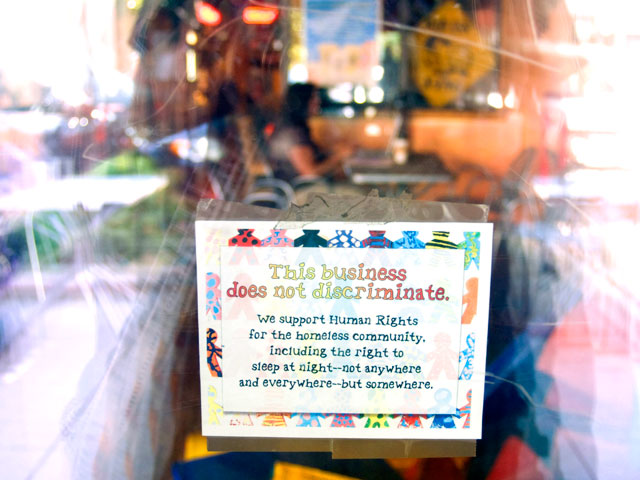 This business
does not discriminate.
We support Human Rights
for the homeless community.
Including the right to
sleep at night--not anywhere
and everywhere--but somewhere.